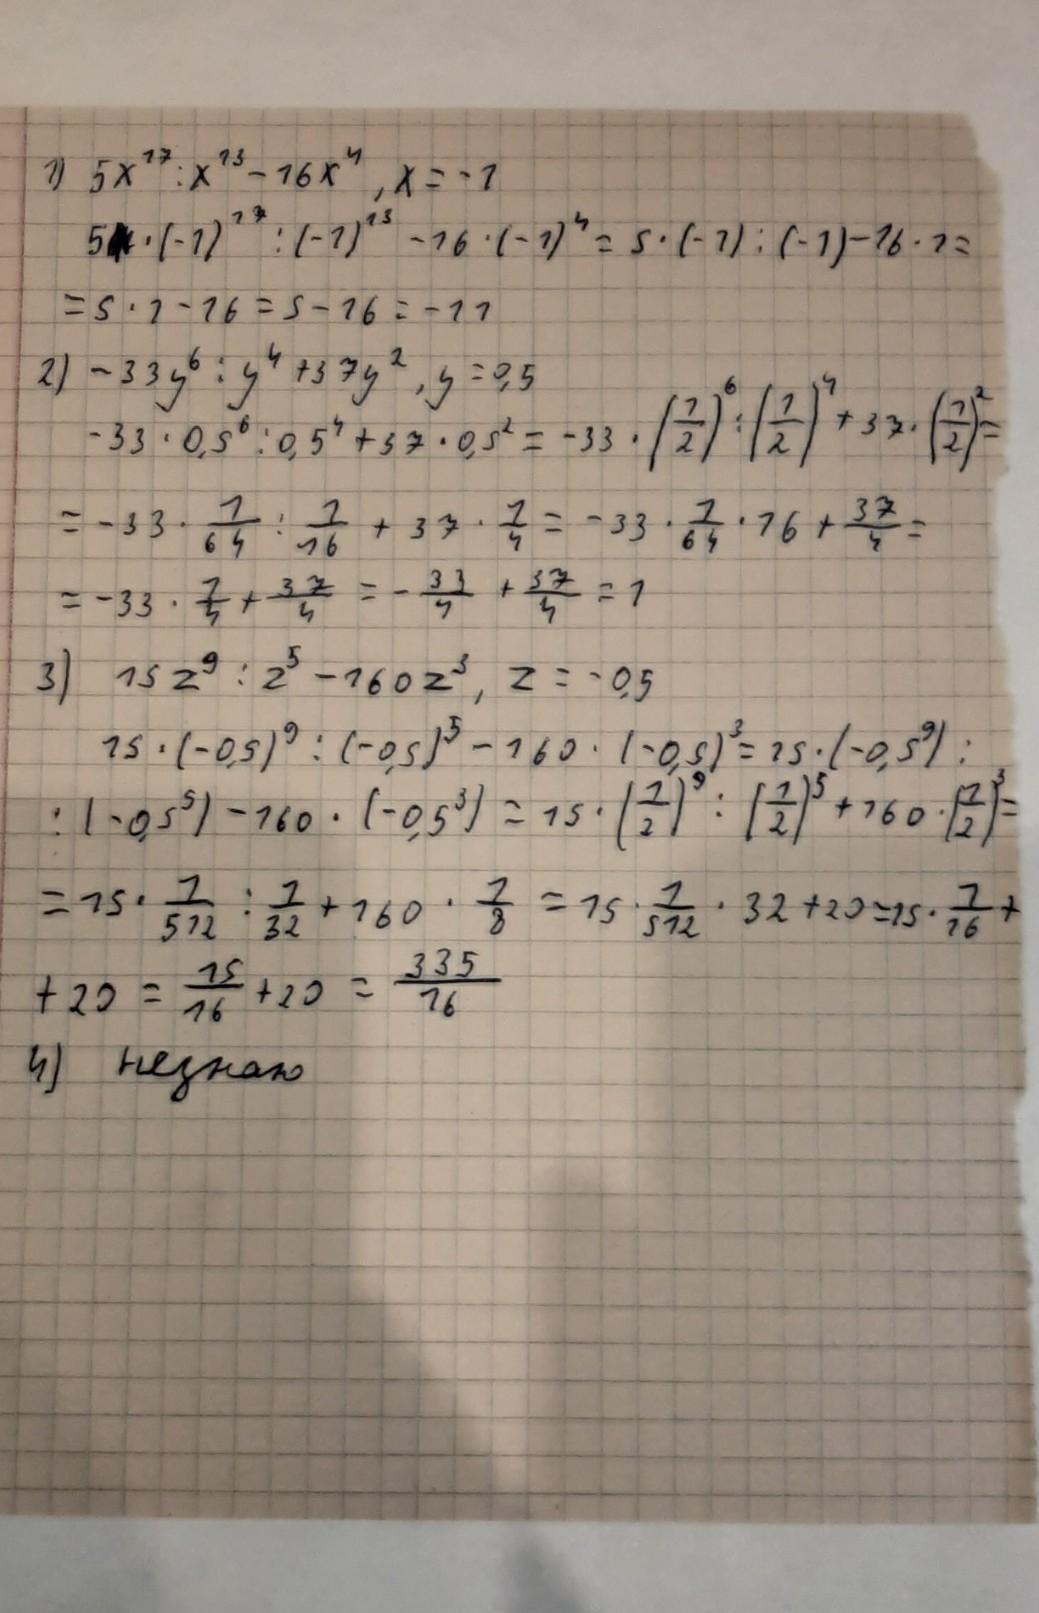 1) 5x¹⁷ : x¹³ - 16x⁴, x = -1
5 · (-1)¹⁷ : (-1)¹³ - 16 · (-1)⁴ = 5 · (-1) : (-1) - 16 · 1 =
= 5 · 1 - 16 = 5 - 16 = -11
2) -33y⁶ : y⁴ + 37y², y = 0,5
-33 · 0,5⁶ : 0,5⁴ + 37 · 0,5² = -33 · (1/2)⁶ : (1/2)⁴ + 37 · (1/2)² =
= -33 · 1/64 : 1/16 + 37 · 1/4 = -33 · 1/64 · 16 + 37/4 =
= -33 · 1/4 + 37/4 = -33/4 + 37/4 = 1
3) 15z⁹ : z⁵ - 160z³, z = -0,5
15 · (-0,5)⁹ : (-0,5)⁵ - 160 · (-0,5)³ = 15 · (-0,5⁹) :
: (-0,5⁵) - 160 · (-0,5³) = 15 · (1/2)⁹ : (1/2)⁵ + 160 · (1/2)³ =
= 15 · 1/512 : 1/32 + 160 · 1/8 = 15 · 1/512 · 32 + 20 = 15 · 1/16 +
+ 20 = 15/16 + 20 = 335/16
4) незнаю